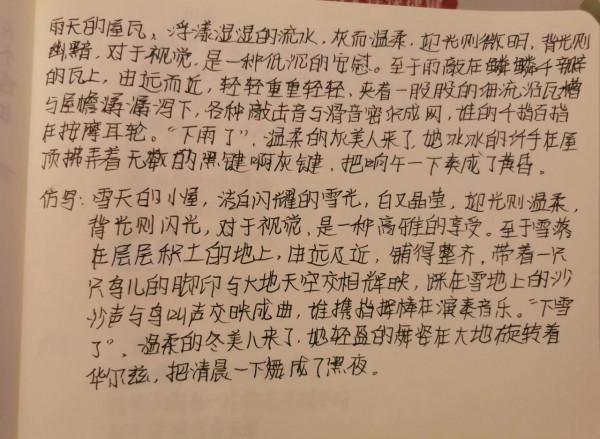 雨天的屋瓦，浮漾湿湿的流水，灰而温柔，迎光则微明，背光则
幽黯，对于视觉，是一种低沉的安慰。至于雨敲在鳞鳞千瓣
的瓦上，由远而近，轻轻重重轻轻，夹着一股股的细流沿瓦槽
与屋檐潺潺泻下，各种敲击音与滑音密织成网，谁的千指百指
在按摩耳轮。“下雨了”，温柔的灰美人来了，她冰冰的纤手在屋
顶拂弄着无数的黑键啊灰键，把晌午一下奏成了黄昏。
仿写：雪天的小屋，洁白闪耀的雪光，白又晶莹，迎光则温柔，
背光则闪光，对于视觉，是一种高雅的享受。至于雪落
在层层积土的地上，由远及近，铺得整齐，带着一只
只鸟儿的脚印与大地天空交相辉映，踩在雪地上的沙
沙声与鸟叫声交映成曲，谁携指挥棒在演奏音乐。“下雪
了”，温柔的冬美人来了，她轻盈的舞姿在大地旋转着
华尔兹，把清晨一下舞成了黑夜。